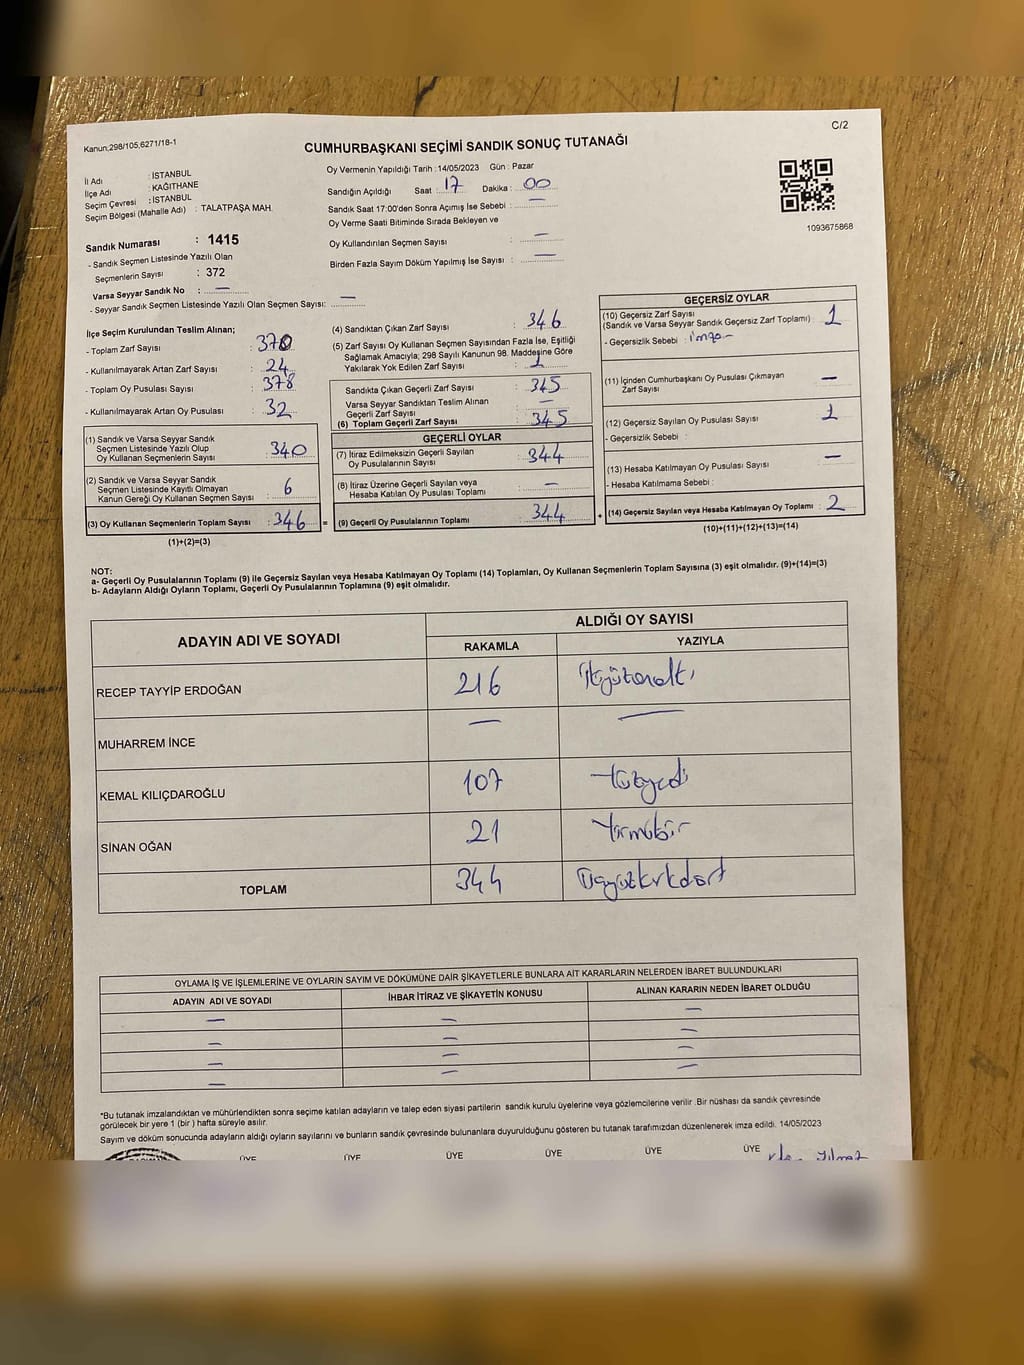 C/2
Kanun;298/105,6271/18-1
CUMHURBAŞKANI SEÇİMİ SANDIK SONUÇ TUTANAĞI
İl Adı : İSTANBUL
İlçe Adı : KAĞITHANE
Seçim Çevresi : İSTANBUL
Seçim Bölgesi (Mahalle Adı) : TALATPAŞA MAH.
Oy Vermenin Yapıldığı Tarih : 14/05/2023 Gün : Pazar
Sandığın Açıldığı Saat : 17 Dakika : 00
Sandık Saat 17:00'den Sonra Açımış İse Sebebi : —
Oy Verme Saati Bitiminde Sırada Bekleyen ve
Oy Kullandırılan Seçmen Sayısı : —
Birden Fazla Sayım Döküm Yapılmış İse Sayısı : —
1093675868
Sandık Numarası : 1415
- Sandık Seçmen Listesinde Yazılı Olan
Seçmenlerin Sayısı : 372
Varsa Seyyar Sandık No : —
- Seyyar Sandık Seçmen Listesinde Yazılı Olan Seçmen Sayısı: —
İlçe Seçim Kurulundan Teslim Alınan;
- Toplam Zarf Sayısı : 370
- Kullanılmayarak Artan Zarf Sayısı : 24
- Toplam Oy Pusulası Sayısı : 378
- Kullanılmayarak Artan Oy Pusulası : 32
(1) Sandık ve Varsa Seyyar Sandık
Seçmen Listesinde Yazılı Olup
Oy Kullanan Seçmenlerin Sayısı : 340
(2) Sandık ve Varsa Seyyar Sandık
Seçmen Listesinde Kayıtlı Olmayan
Kanun Gereği Oy Kullanan Seçmen Sayısı : 6
(3) Oy Kullanan Seçmenlerin Toplam Sayısı : 346 =
(1)+(2)=(3)
(4) Sandıktan Çıkan Zarf Sayısı : 346
(5) Zarf Sayısı Oy Kullanan Seçmen Sayısından Fazla İse, Eşitliği
Sağlamak Amacıyla; 298 Sayılı Kanunun 98. Maddesine Göre
Yakılarak Yok Edilen Zarf Sayısı : 1
Sandıkta Çıkan Geçerli Zarf Sayısı : 345
Varsa Seyyar Sandıktan Teslim Alınan
Geçerli Zarf Sayısı : —
(6) Toplam Geçerli Zarf Sayısı : 345
GEÇERLİ OYLAR
(7) İtiraz Edilmeksizin Geçerli Sayılan
Oy Pusulalarının Sayısı : 344
(8) İtiraz Üzerine Geçerli Sayılan veya
Hesaba Katılan Oy Pusulası Toplamı : —
(9) Geçerli Oy Pusulalarının Toplamı : 344 +
GEÇERSİZ OYLAR
(10) Geçersiz Zarf Sayısı
(Sandık ve Varsa Seyyar Sandık Geçersiz Zarf Toplamı) : 1
- Geçersizlik Sebebi : imza
(11) İçinden Cumhurbaşkanı Oy Pusulası Çıkmayan
Zarf Sayısı : —
(12) Geçersiz Sayılan Oy Pusulası Sayısı : 1
- Geçersizlik Sebebi :
(13) Hesaba Katılmayan Oy Pusulası Sayısı : —
- Hesaba Katılmama Sebebi :
(14) Geçersiz Sayılan veya Hesaba Katılmayan Oy Toplamı : 2
(10)+(11)+(12)+(13)=(14)
NOT:
a- Geçerli Oy Pusulalarının Toplamı (9) ile Geçersiz Sayılan veya Hesaba Katılmayan Oy Toplamı (14) Toplamları, Oy Kullanan Seçmenlerin Toplam Sayısına (3) eşit olmalıdır. (9)+(14)=(3)
b- Adayların Aldığı Oyların Toplamı, Geçerli Oy Pusulalarının Toplamına (9) eşit olmalıdır.
ADAYIN ADI VE SOYADI ALDIĞI OY SAYISI
RAKAMLA YAZIYLA
RECEP TAYYİP ERDOĞAN 216 İkiyüzonaltı
MUHARREM İNCE — —
KEMAL KILIÇDAROĞLU 107 Yüzyedi
SİNAN OĞAN 21 Yirmibir
TOPLAM 344 Üçyüzkırkdört
OYLAMA İŞ VE İŞLEMLERİNE VE OYLARIN SAYIM VE DÖKÜMÜNE DAİR ŞİKAYETLERLE BUNLARA AİT KARARLARIN NELERDEN İBARET BULUNDUKLARI
ADAYIN ADI VE SOYADI İHBAR İTİRAZ VE ŞİKAYETİN KONUSU ALINAN KARARIN NEDEN İBARET OLDUĞU
— — —
— — —
— — —
— — —
*Bu tutanak imzalandıktan ve mühürlendikten sonra seçime katılan adayların ve talep eden siyasi partilerin sandık kurulu üyelerine veya gözlemcilerine verilir .Bir nüshası da sandık çevresinde
görülecek bir yere 1 (bir ) hafta süreyle asılır.
Sayım ve döküm sonucunda adayların aldığı oyların sayılarını ve bunların sandık çevresinde bulunanlara duyurulduğunu gösteren bu tutanak tarafımızdan düzenlenerek imza edildi. 14/05/2023
ÜYE ÜYE ÜYE ÜYE ÜYE ÜYE Yılmaz